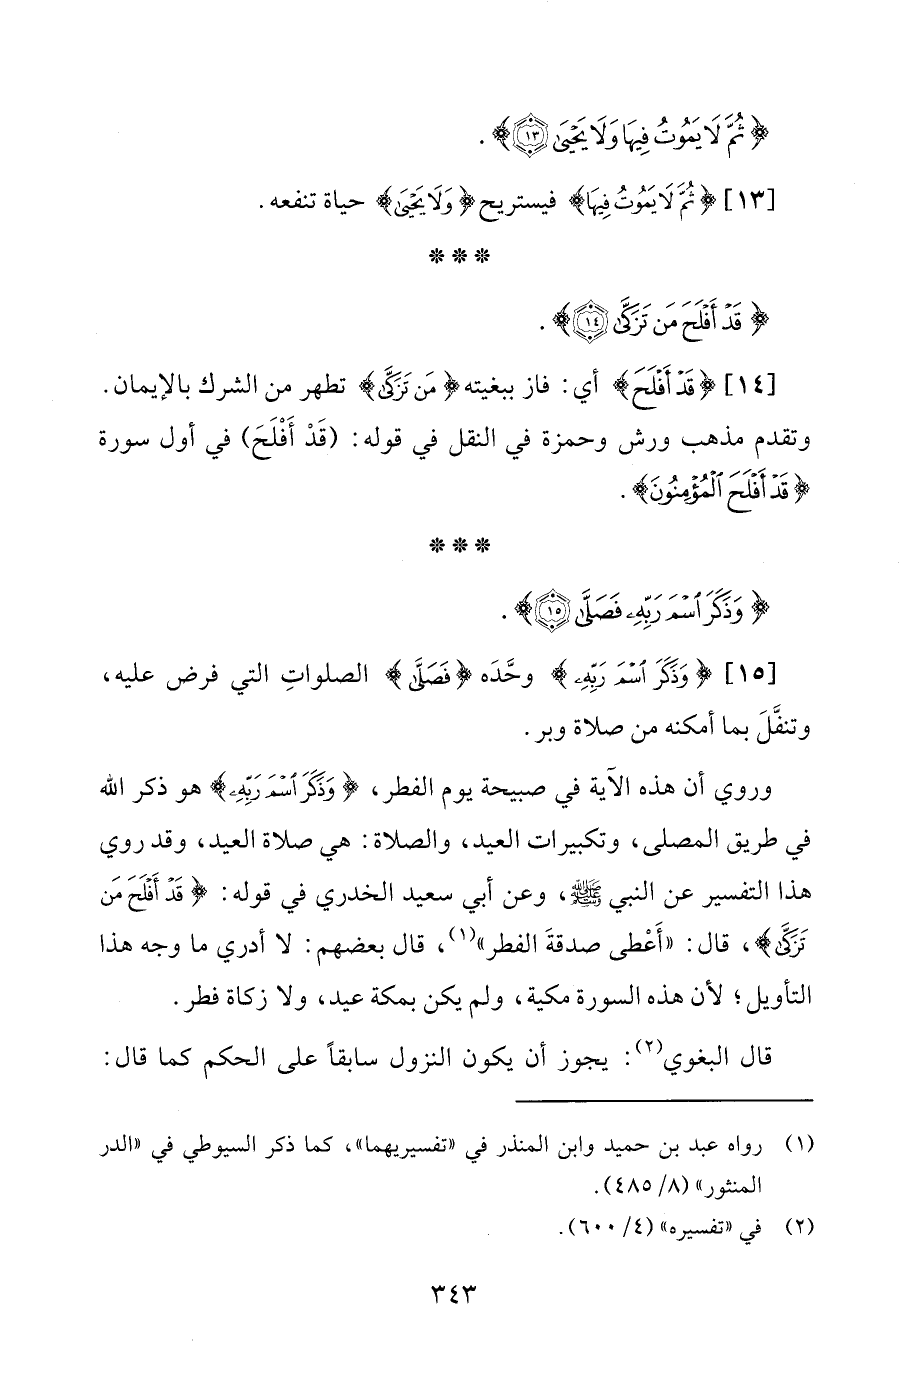 ﴿ ثُمَّ لَا يَمُوتُ فِيهَا وَلَا يَحْيَىٰ ١٣ ﴾ .
[١٣] ﴿ ثُمَّ لَا يَمُوتُ فِيهَا ﴾ فيستريح ﴿ وَلَا يَحْيَىٰ ﴾ حياة تنفعه .
* * *
﴿ قَدْ أَفْلَحَ مَن تَزَكَّىٰ ١٤ ﴾ .
[١٤] ﴿ قَدْ أَفْلَحَ ﴾ أي : فاز ببغيته ﴿ مَن تَزَكَّىٰ ﴾ تطهر من الشرك بالإيمان .
وتقدم مذهب ورش وحمزة في النقل في قوله : (قَدْ أَفْلَحَ) في أول سورة
﴿ قَدْ أَفْلَحَ ٱلْمُؤْمِنُونَ ﴾ .
* * *
﴿ وَذَكَرَ ٱسْمَ رَبِّهِۦ فَصَلَّىٰ ١٥ ﴾ .
[١٥] ﴿ وَذَكَرَ ٱسْمَ رَبِّهِۦ ﴾ وحَّدَه ﴿ فَصَلَّىٰ ﴾ الصلواتِ التي فرض عليه ،
وتنفَّلَ بما أمكنه من صلاة وبر .
وروي أن هذه الآية في صبيحة يوم الفطر ، ﴿ وَذَكَرَ ٱسْمَ رَبِّهِۦ ﴾ هو ذكر الله
في طريق المصلى ، وتكبيرات العيد ، والصلاة : هي صلاة العيد ، وقد روي
هذا التفسير عن النبي ﷺ ، وعن أبي سعيد الخدري في قوله : ﴿ قَدْ أَفْلَحَ مَن
تَزَكَّىٰ ﴾ ، قال : «أَعْطى صدقةَ الفطر»(١) ، قال بعضهم : لا أدري ما وجه هذا
التأويل ؛ لأن هذه السورة مكية ، ولم يكن بمكة عيد ، ولا زكاة فطر .
قال البغوي(٢) : يجوز أن يكون النزول سابقاً على الحكم كما قال :
(١) رواه عبد بن حميد وابن المنذر في «تفسيريهما» ، كما ذكر السيوطي في «الدر
المنثور» (٨/ ٤٨٥) .
(٢) في «تفسيره» (٤/ ٦٠٠) .
٣٤٣